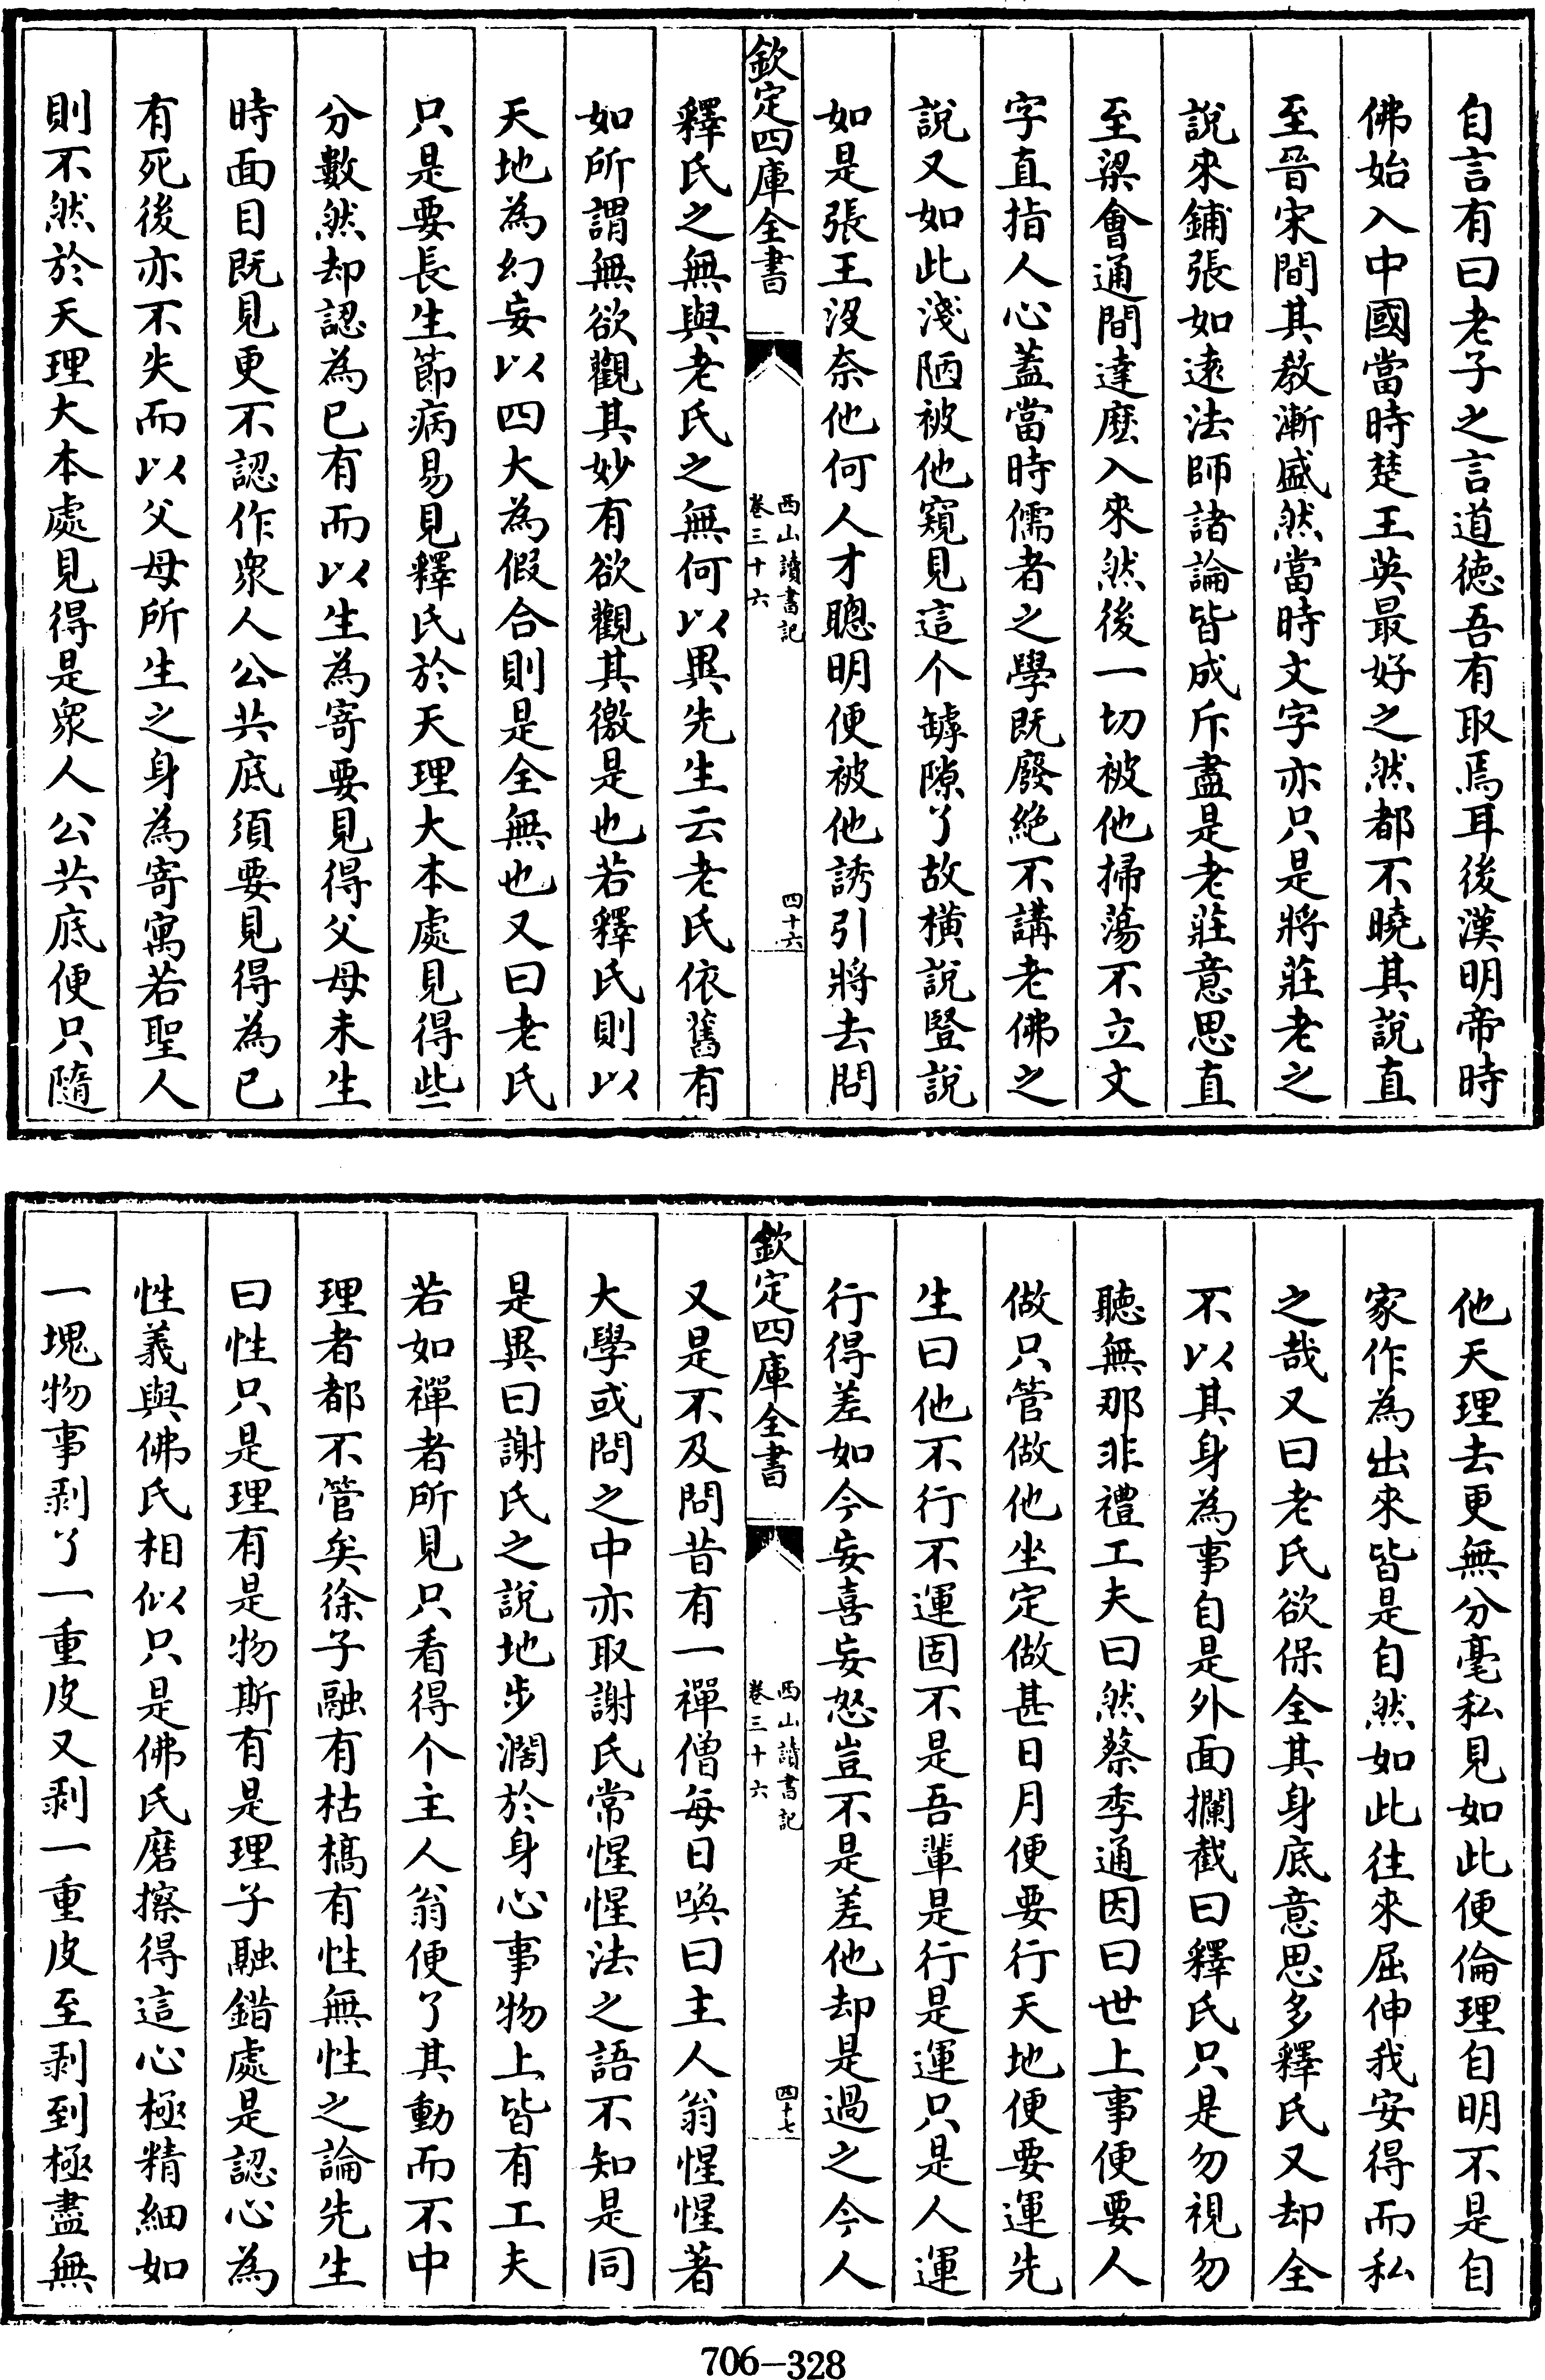 自言有曰老子之言道徳吾有取焉耳後漢明帝時
佛始入中國當時楚王英最好之然都不曉其說直
至晉宋間其教漸盛然當時文字亦只是將莊老之
說來鋪張如逺法師諸論皆成斥盡是老莊意思直
至梁會通間達麽入來然後一切被他掃蕩不立文
字直指人心蓋當時儒者之學既廢絶不講老佛之
說又如此淺陋被他窺見這个罅隙了故橫說豎說
如是張王沒奈他何人才聰明便被他誘引將去問
欽定四庫全書
西山讀書記
卷三十六
四十六
釋氏之無與老氏之無何以異先生云老氏依舊有
如所謂無欲觀其妙有欲觀其徼是也若釋氏則以
天地為幻妄以四大為假合則是全無也又曰老氏
只是要長生節病易見釋氏於天理大本處見得些
分數然却認為已有而以生為寄要見得父母未生
時面目既見更不認作衆人公共底須要見得為已
有死後亦不失而以父母所生之身為寄寓若聖人
則不然於天理大本處見得是衆人公共底便只隨
他天理去更無分毫私見如此便倫理自明不是自
家作為出來皆是自然如此往來屈伸我安得而私
之哉又曰老氏欲保全其身底意思多釋氏又却全
不以其身為事自是外面攔截曰釋氏只是勿視勿
聽無那非禮工夫曰然蔡季通因曰世上事便要人
做只管做他坐定做甚日月便要行天地便要運先
生曰他不行不運固不是吾輩是行是運只是人運
行得差如今妄喜妄怒豈不是差他却是過之今人
欽定四庫全書
西山讀書記
卷三十六
四十七
又是不及問昔有一禪僧每日喚曰主人翁惺惺著
大學或問之中亦取謝氏常惺惺法之語不知是同
是異曰謝氏之說地步濶於身心事物上皆有工夫
若如禪者所見只看得个主人翁便了其動而不中
理者都不管矣徐子融有枯槁有性無性之論先生
曰性只是理有是物斯有是理子融錯處是認心為
性義與佛氏相似只是佛氏磨擦得這心極精細如
一塊物事剥了一重皮又剥一重皮至剥到極盡無
706-328